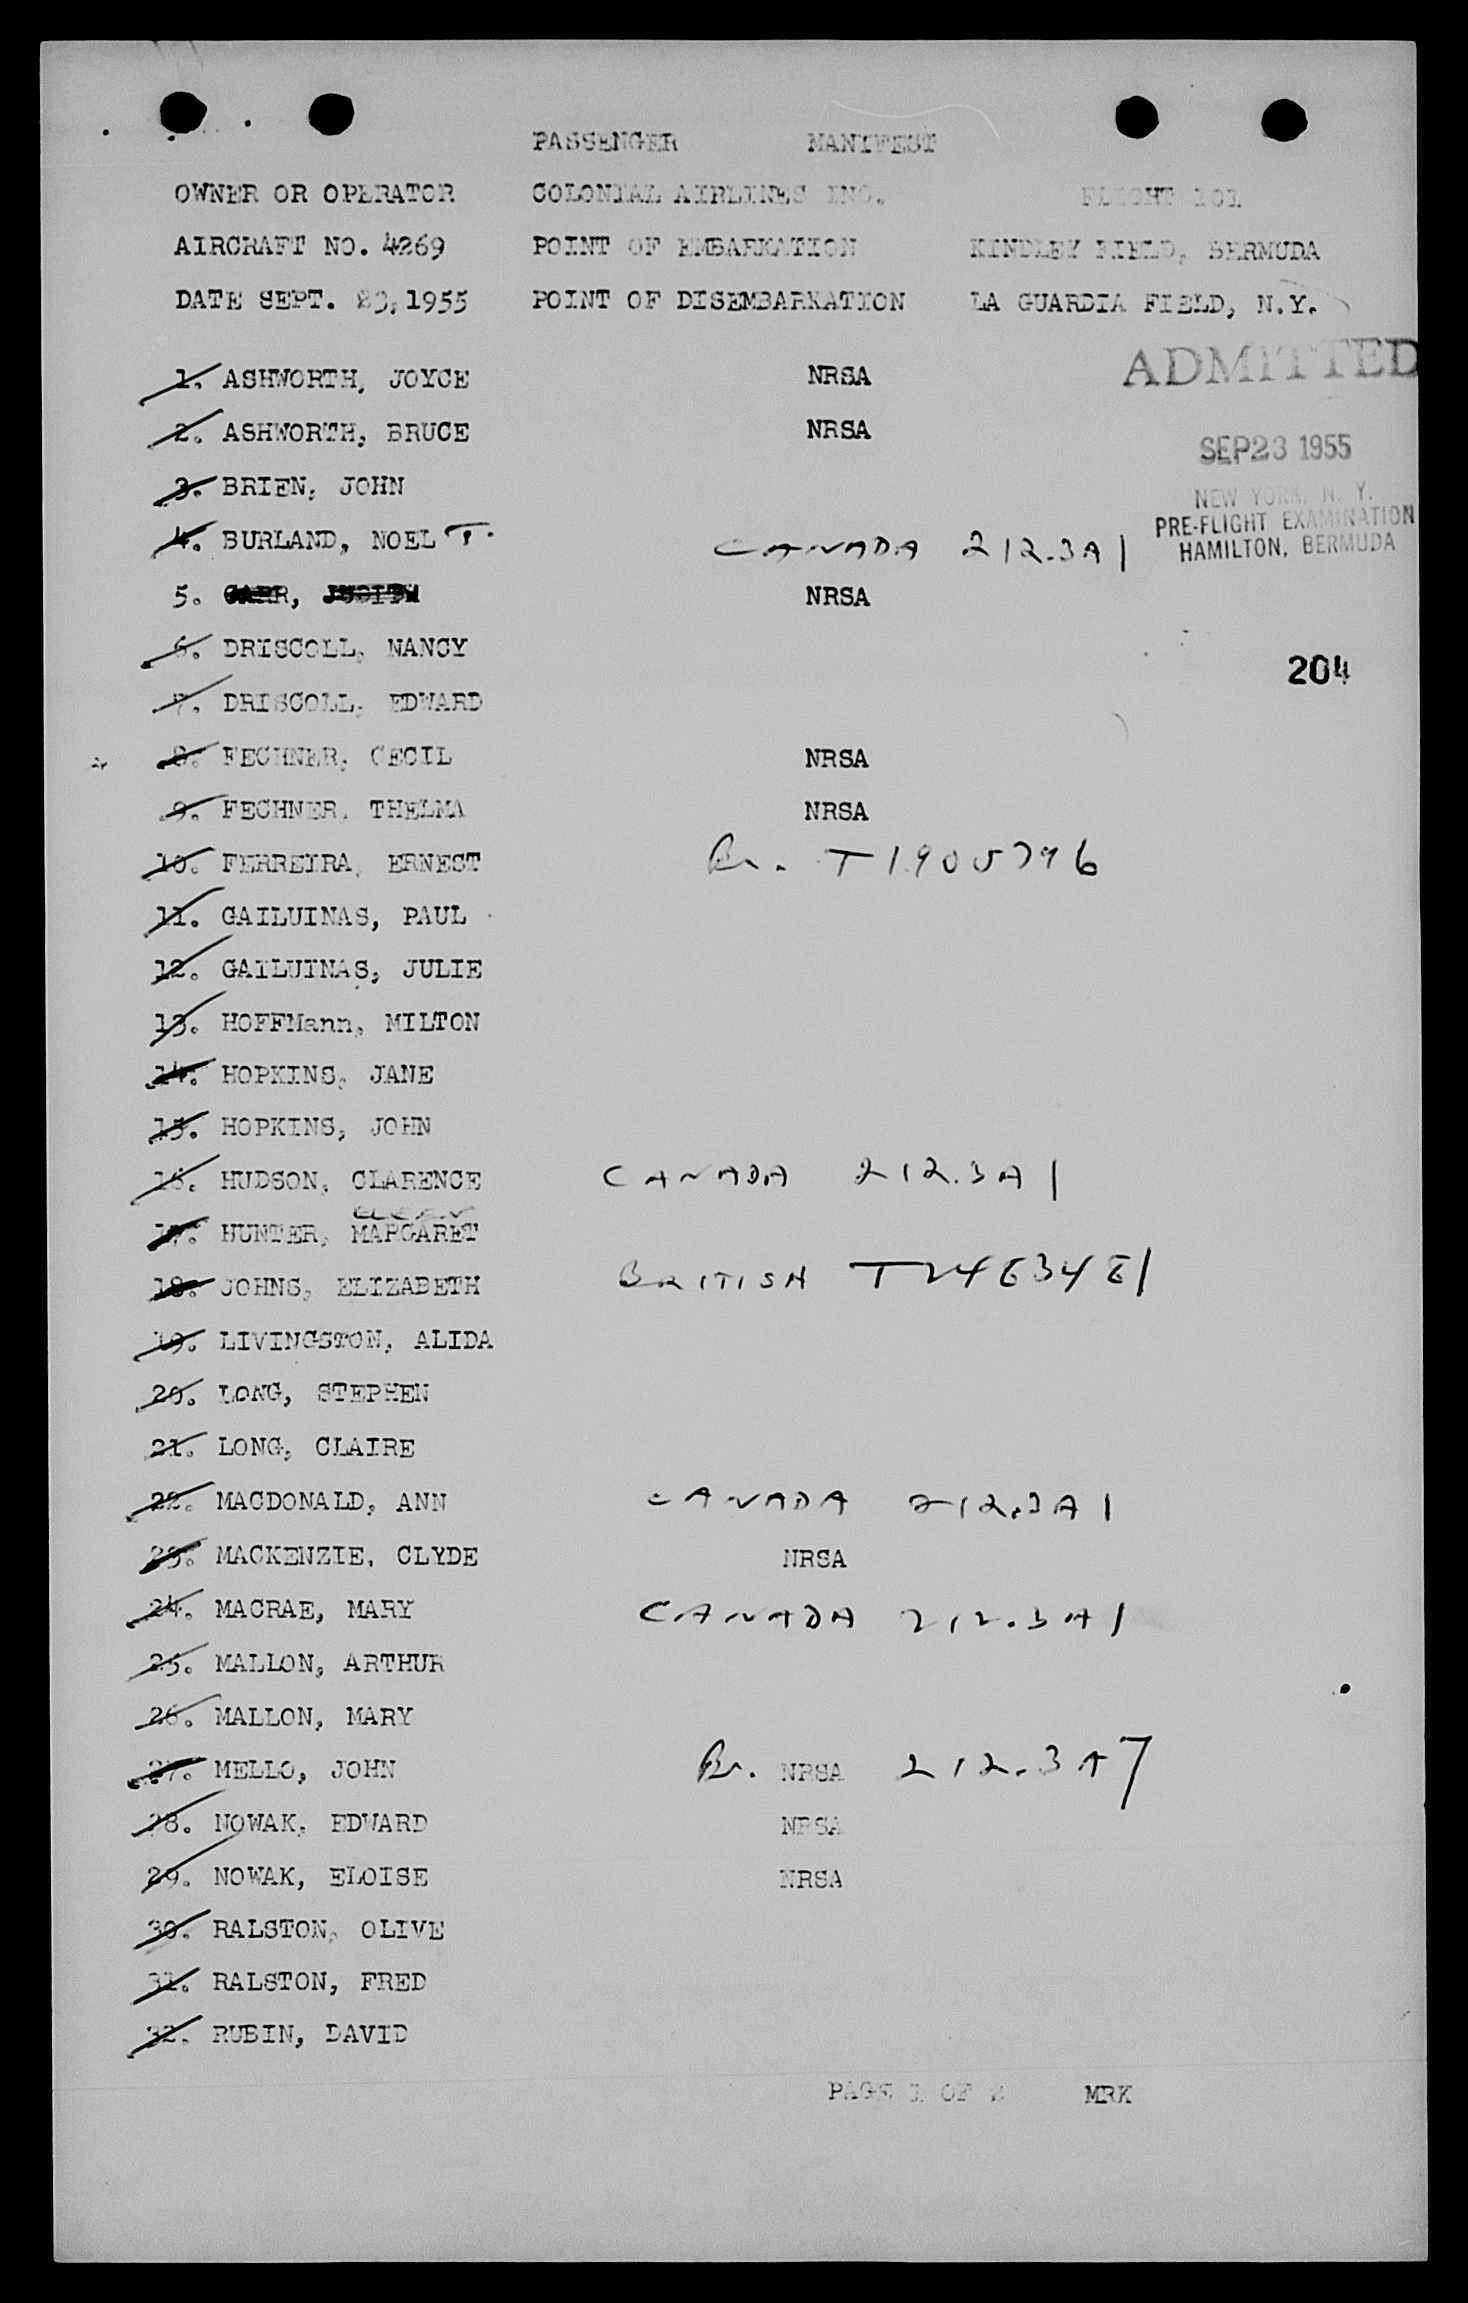 PASSENGER MANIFEST
OWNER OR OPERATOR COLONIAL AIRLINES INC. FLIGHT 101
AIRCRAFT NO. 4269 POINT OF EMBARKATION KINDLEY FIELD, BERMUDA
DATE SEPT. 23, 1955 POINT OF DISEMBARKATION LA GUARDIA FIELD, N.Y.
ADMITTED
1. ASHWORTH, JOYCE NRSA
2. ASHWORTH, BRUCE NRSA
SEP 23 1955
NEW YORK, N. Y.
PRE-FLIGHT EXAMINATION
HAMILTON, BERMUDA
3. BRIEN, JOHN
4. BURLAND, NOEL T. CANADA 212.3A1
5. CARR, JUDITH NRSA
6. DRISCOLL, NANCY
204
7. DRISCOLL, EDWARD
8. FECHNER, CECIL NRSA
9. FECHNER, THELMA NRSA
10. FERREIRA, ERNEST Br. T1905796
11. GAILUINAS, PAUL
12. GAILUINAS, JULIE
13. HOFFMann, MILTON
14. HOPKINS, JANE
15. HOPKINS, JOHN
16. HUDSON, CLARENCE CANADA 212.3A1
17. HUNTER, MARGARET
18. JOHNS, ELIZABETH BRITISH T2463481
19. LIVINGSTON, ALIDA
20. LONG, STEPHEN
21. LONG, CLAIRE
22. MACDONALD, ANN CANADA 212.3A1
23. MACKENZIE, CLYDE NRSA
24. MACRAE, MARY CANADA 212.3A1
25. MALLON, ARTHUR
26. MALLON, MARY
27. MELLO, JOHN Br. NRSA 212.3A7
28. NOWAK, EDWARD NRSA
29. NOWAK, ELOISE NRSA
30. RALSTON, OLIVE
31. RALSTON, FRED
32. RUBIN, DAVID
PAGE 1 OF 2 MRK